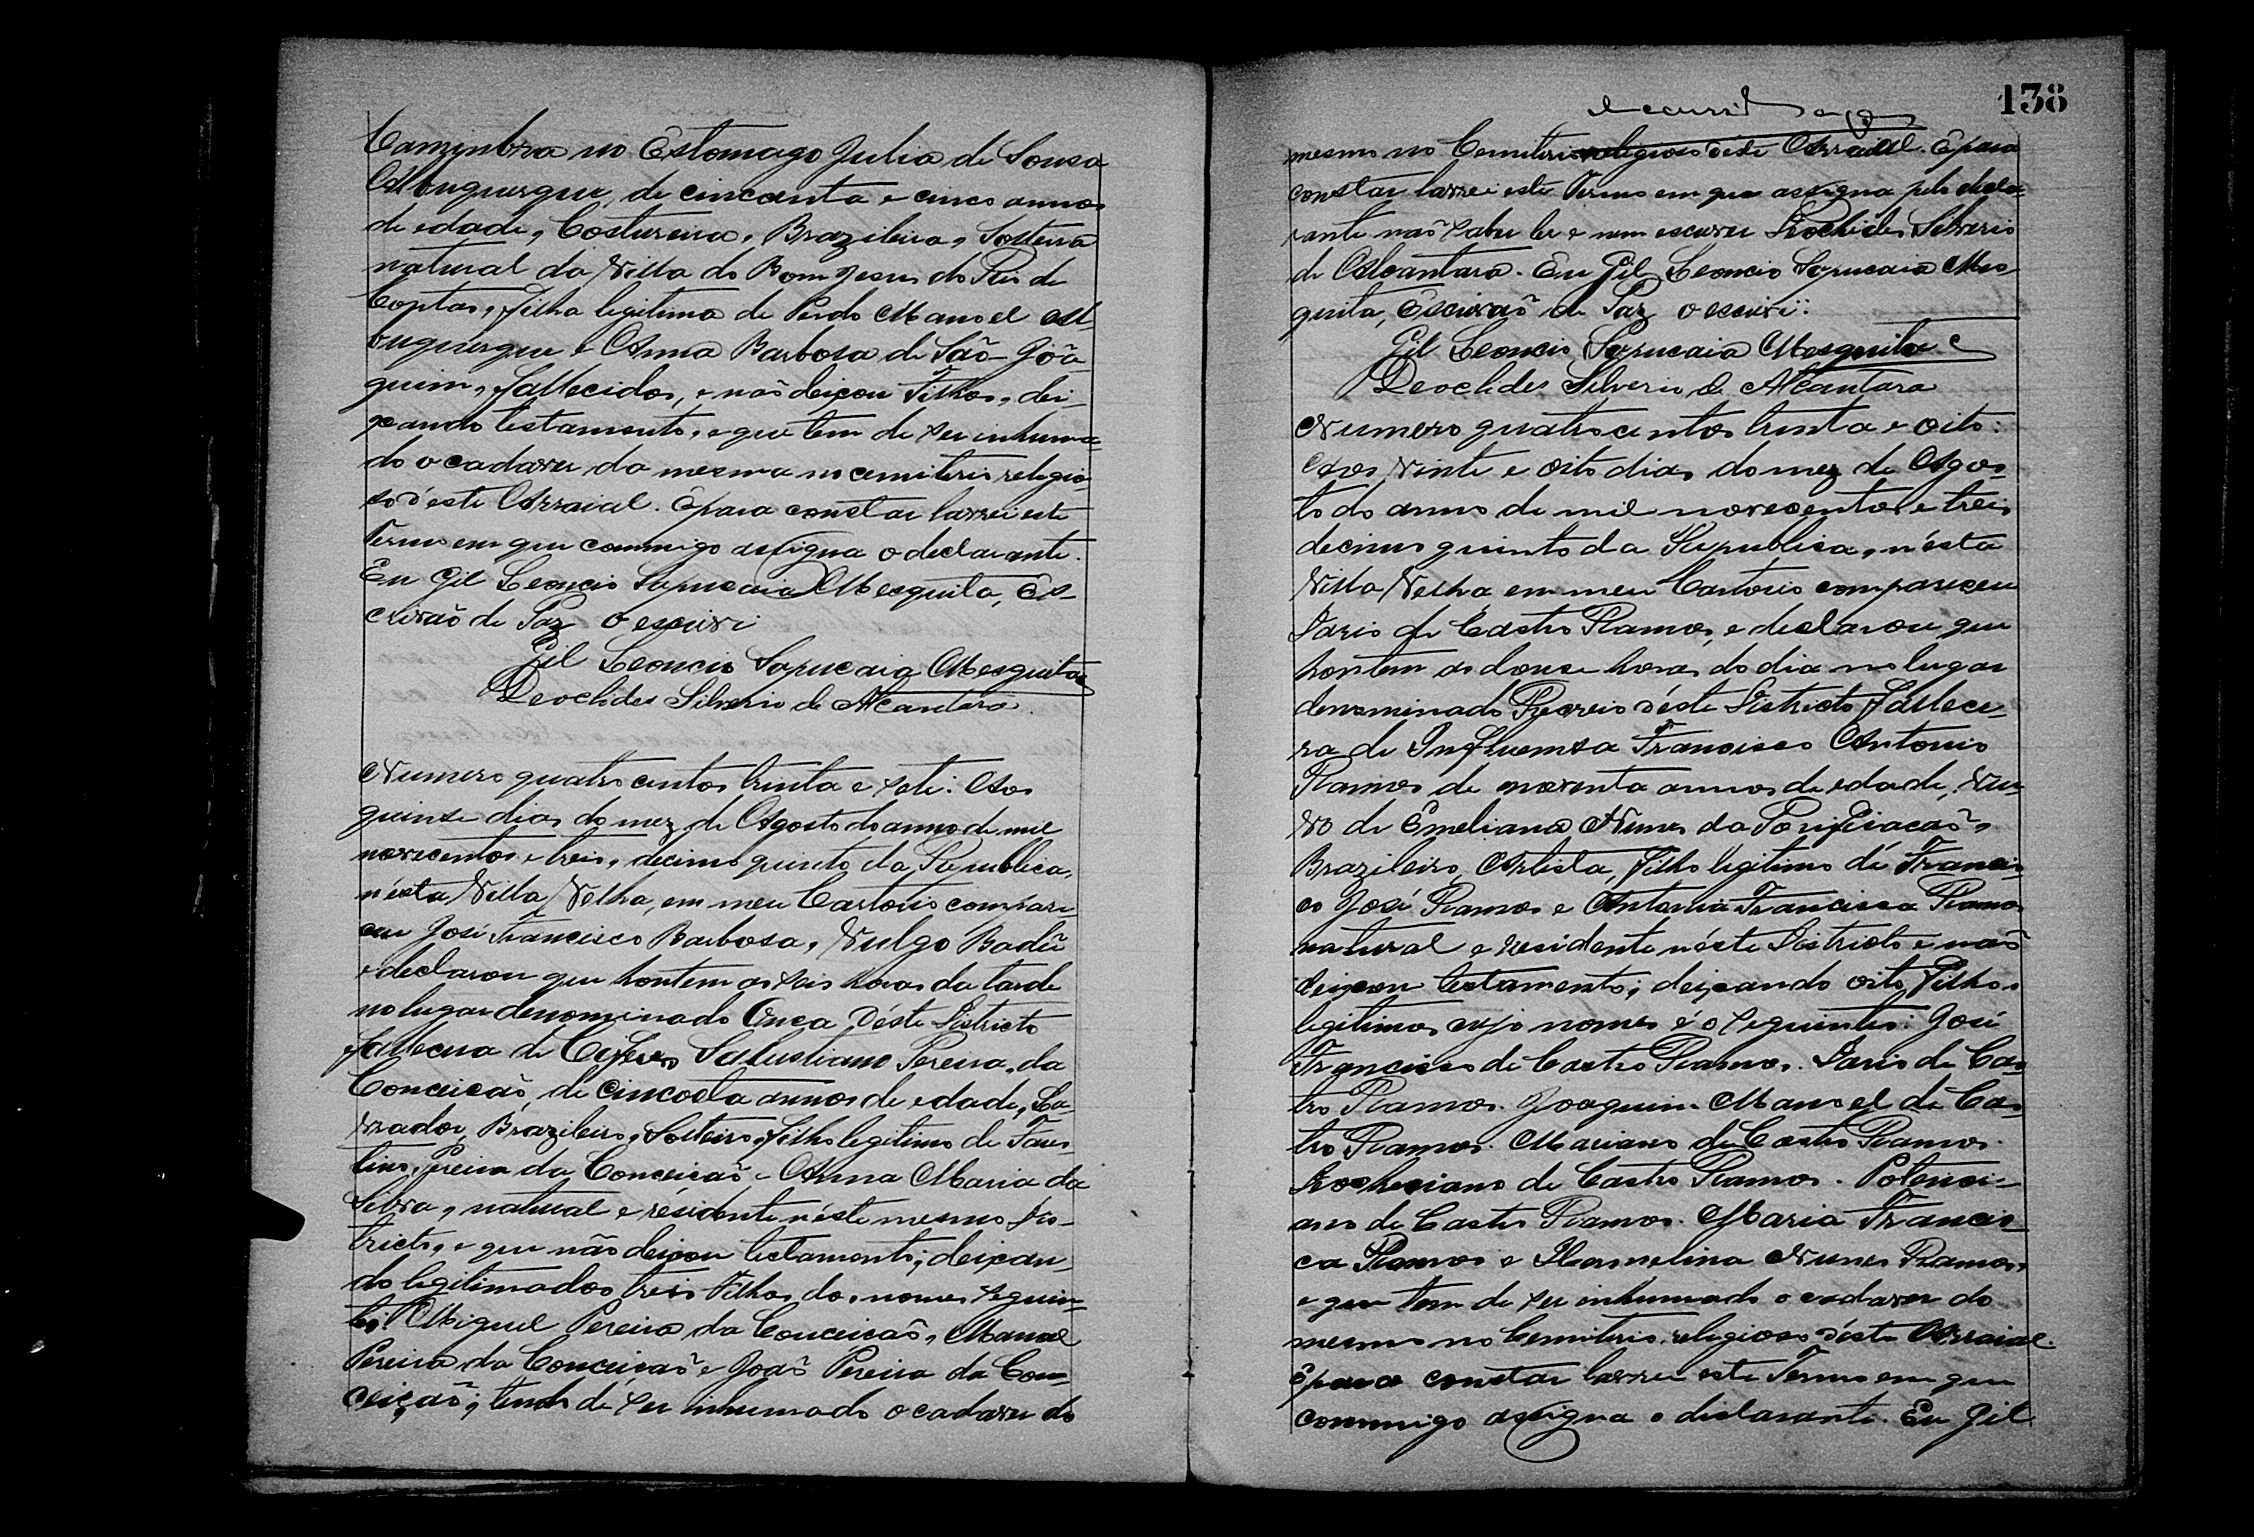 no Estomago Julia de Sousa
Albuquerque, de cincoenta e cinco annos
de edade, Costureira, Brazileira, Solteira
natural da Villa do Bom Jesus do Rio de
Contas, filha legitima de Pedro Manoel Al-
buquerque e Anna Barbosa de São Joa-
quim, fallecidos, e não deixou Filhos, dei-
xando testamento, e que tem de ser inhuma-
do o cadaver da mesma no cemiterio religio-
so d'este Arraial. E para constar lavrei este
Termo em que commigo assigna o declarante.
Eu Gil Leoncio Sapucaia Mesquita, Es-
crivão de Paz o escrivi
Gil Leoncio Sapucaia Mesquita
Deoclides Silverio de Alcantara.
Numero quatro centos trinta e sete: Aos
quinse dias do mez de Agosto do anno de mil
novecentos e treis, decimo quinto da Republica,
n'esta Villa Velha, em meu Cartorio compare-
ceu José Francisco Barbosa, Vulgo
e declarou que hontem as seis horas da tarde
no lugar denominado Onça d'este Districto
fallecera de Salustiano Pereira da
Conceicão, de annos de edade, La-
vrador, Brazileiro, Solteiro, filho legitimo de Faus-
tino Pereira da Conceicão e Anna Maria da
Silva, natural e residente n'este mesmo Dis-
tricto, e que não deixou testamento; deixan-
do legitimados treis Filhos dos nomes seguin-
tes: Miguel Pereira da Conceicão, Manoel
Pereira da Conceicão e João Pereira da Con-
ceição; tendo de ser inhumado o cadaver do
138
mesmo no Cemiterio religioso d'este Arraial. E para
constar lavrei este Termo em que assigna pelo decla-
rante não saber ler e nem escrever Deoclides Silverio
de Alcantara. Eu Gil Leoncio Sapucaia Mes-
quita, Escrivão de Paz o escrivi:
Gil Leoncio Sapucaia Mesquita
Deoclides Silverio de Alcantara
Numero quatrocentos trinta e oito:
Aos vinte e oito dias do mez de Agos-
to do anno de mil novecentos e treis,
decimo quinto da Republica, n'esta
Villa Velha, em meu Cartorio compareceu
de Castro Ramos, e declarou que
hontem as douse horas do dia no lugar
denominado d'este Districto fallece-
ra de Influensa Francisco Antonio
Ramos de noventa annos de edade, Viu-
vo de Emeliana Nunes da Porificacão,
Brazileiro, Artista, filho legitimo de Francis-
co José Ramos e Antonia Francisca Ramos
natural e residente n'este Districto e não
deixou testamento; deixando oito Filhos
legitimos cujo nomes é o seguintes: José
Francisco de Castro Ramos. de Cas-
tro Ramos. Joaquim Manoel de Cas-
tro Ramos. Mariano de Castro Ramos.
de Castro Ramos. Potenci-
ano de Castro Ramos. Maria Francis-
ca Ramos e Hermelina Nunes Ramos,
e que tem de ser inhumado o cadaver do
mesmo no Cemiterio religioso d'este Arraial.
E para constar lavrei este Termo em que
commigo assigna o declarante. Eu Gil